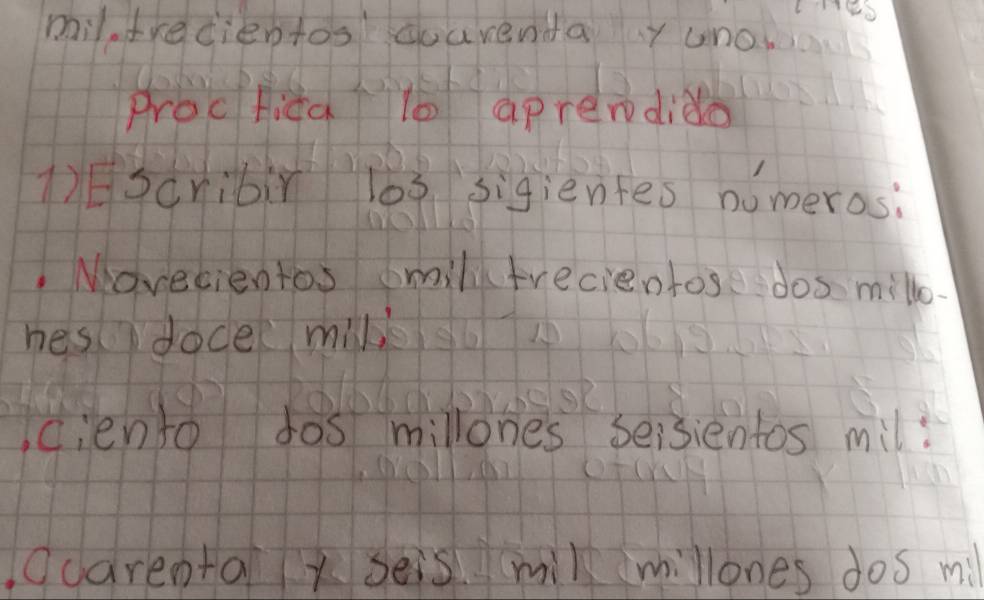 mil. trecientos cuarenta y uno.
Practica lo aprendido
1) Escribir los sigientes números:
. Novecientos mil trecientos dos millo-
nes doce mil:
. ciento dos millones seisientos mil:
. Cuarenta y seis mil millones dos mil